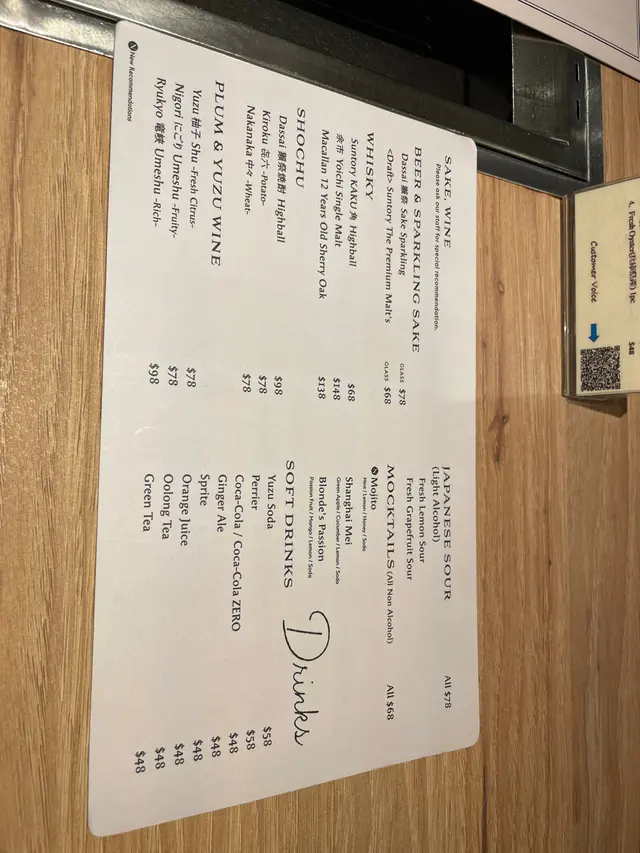 SAKE, WINE
Please ask our staff for special recommendation.
BEER & SPARKLING SAKE
Dassai 獺祭 Sake Sparkling GLASS $78
<Draft> Suntory The Premium Malt's GLASS $68
WHISKY
Suntory KAKU 角 Highball $68
余市 Yoichi Single Malt $148
Macallan 12 Years Old Sherry Oak $138
SHOCHU
Dassai 獺祭焼酎 Highball $98
Kiroku 㐂六 -Potato- $78
Nakanaka 中々 -Wheat- $78
PLUM & YUZU WINE
Yuzu 柚子 Shu -Fresh Citrus- $78
Nigori にごり Umeshu -Fruity- $78
Ryukyo 竜峡 Umeshu -Rich- $98
New Recommendations
JAPANESE SOUR All $78
(Light Alcohol)
Fresh Lemon Sour
Fresh Grapefruit Sour
MOCKTAILS (All Non Alcohol) All $68
N Mojito
Mint / Lemon / Honey / Soda
Shanghai Mei
Green Apple / Cucumber / Lemon / Soda
Blonde's Passion
Passion Fruit / Mango / Lemon / Soda
SOFT DRINKS
Yuzu Soda $58
Perrier $58
Coca-Cola / Coca-Cola ZERO $48
Ginger Ale $48
Sprite $48
Orange Juice $48
Oolong Tea $48
Green Tea $48
Drinks
4. Fresh Oyster 1pc $48
Customer Voice